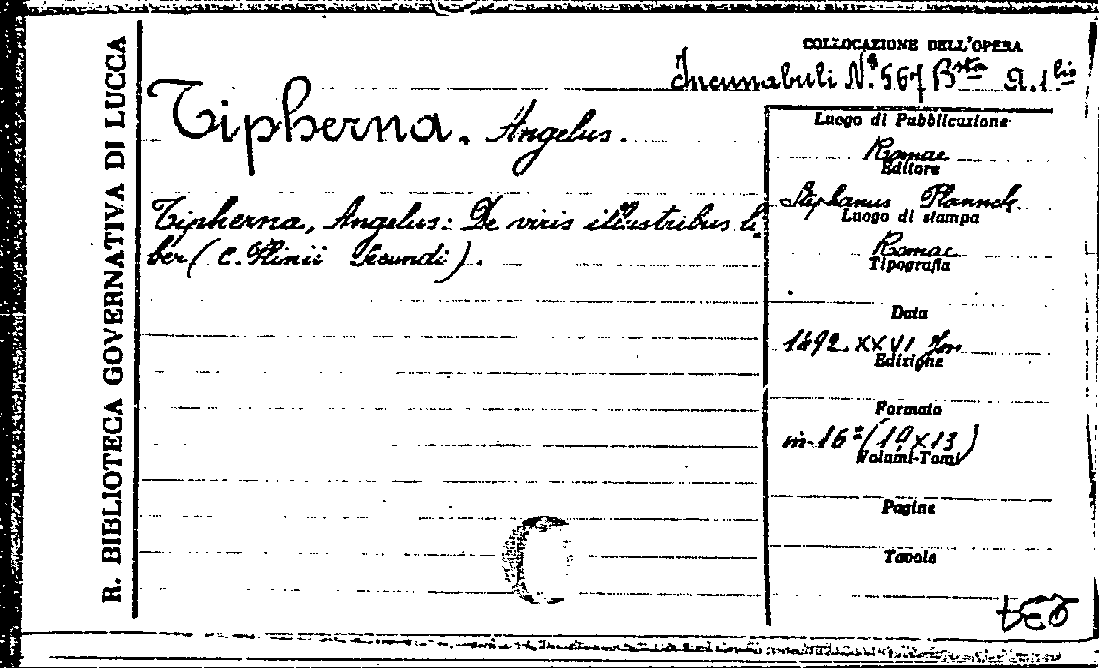 R. BIBLIOTECA GOVERNATIVA DI LUCCA
COLLOCAZIONE DELL'OPERA
Incunabuli N.° 567 B.sta A.1 bis
Tipherna. Angelus.
Tipherna, Angelus: De viris illustribus li
ber (C. Plinii Secundi).
Luogo di Pubblicazione
Romae
Editore
Stephanus Plannck.
Luogo di stampa
Romae
Tipografia
Data
1492. XXVI Jan
Edizione
Formato
in-16° (19x13)
Volumi-Tomi
Pagine
Tavole